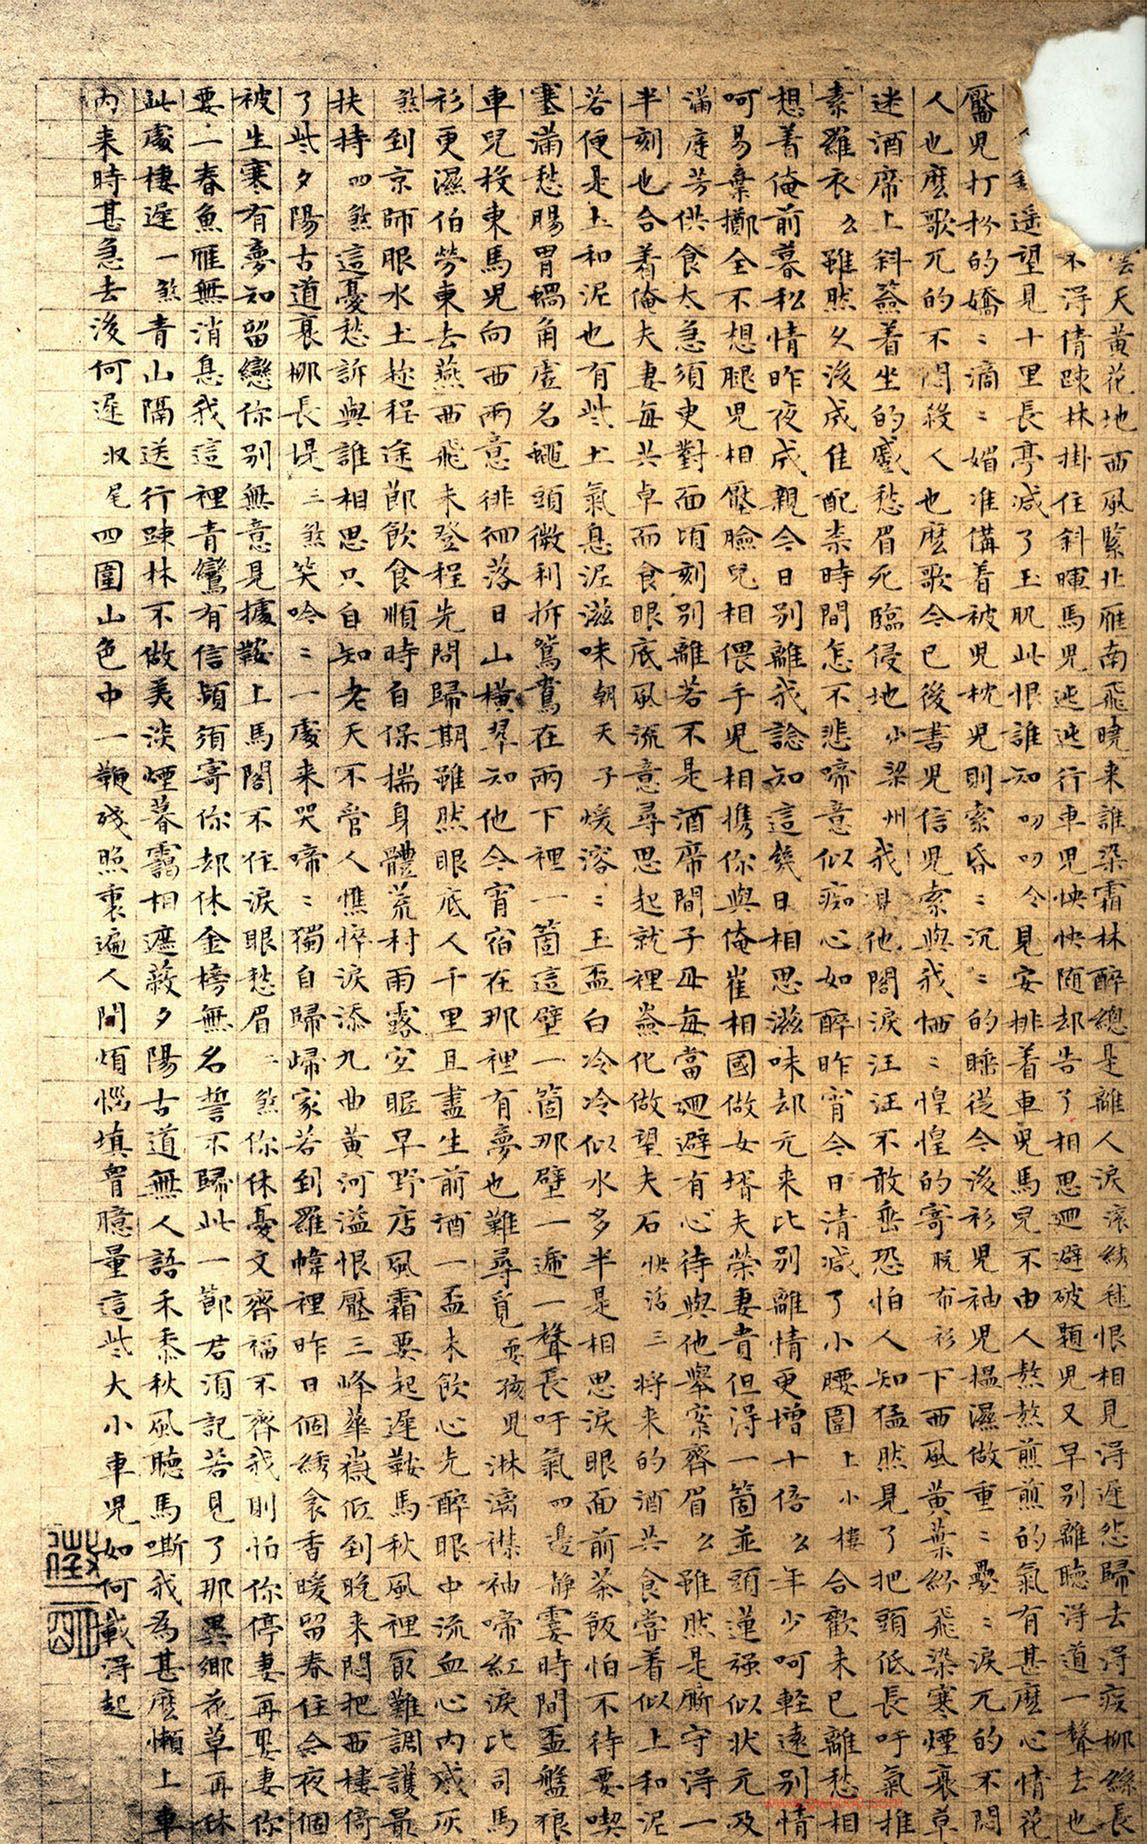 雲天黃花地西風緊北雁南飛曉来誰染霜林醉總是離人淚滾綉毬恨相見淂遲怨歸去淂疾柳絲長
不淂倩踈林掛住斜暉馬兒迍迍行車兒怏怏随却告了相思廻避破題兒又早別離聽淂道一聲去也
遥望見十里長亭减了玉肌此恨誰知叨叨令見安排着車兒馬兒不由人熬熬煎煎的氣有甚麽心情花
靨兒打扮的嬌〻滴〻媚准備着被兒枕兒則索昏〻沉〻的睡從今後衫兒袖兒揾濕做重〻疊〻淚兀的不悶
人也麽歌兀的不悶殺人也麽歌今已後書兒信兒索與我恓〻惶惶的寄脱布衫下西風黃葉紛飛染寒煙衰草
迷酒席上斜簽着坐的蹙愁眉死臨侵地小梁州我見他閣淚汪汪不敢垂恐怕人知猛然見了把頭低長吁氣推
素羅衣么雖然久後成佳配柰時間怎不悲啼意似痴心如醉昨宵今日清减了小腰圍上小樓合歡未已離愁相
想着俺前暮私情昨夜成親今日別離我諗知這幾日相思滋味却元来比別離情更增十倍么年少呵輕遠別情
呵易棄擲全不想腿兒相壓臉兒相偎手兒相携你與俺崔相國做女壻夫榮妻貴但淂一箇並頭蓮强似状元及
滿庭芳供食太急須更對面頃刻別離若不是酒席間子母每當廻避有心待與他舉案齊眉么雖然是廝守淂一
半刻也合着俺夫妻每共卓而食眼底風流意尋思起就裡嶮化做望夫石快活三将来的酒共食嘗着似上和泥
若便是土和泥也有些土氣息泥滋味朝天子煖溶〻玉盃白冷冷似水多半是相思淚眼面前茶飯怕不待要喫
塞滿愁腸胃蝸角虗名蠅頭微利拆鴛鴦在兩下裡一箇這壁一箇那壁一遞一聲長吁氣四邊静霎時間盃盤狼
車兒投東馬兒向西兩意徘徊落日山橫翠知他今宵宿在那裡有夢也難尋覓耍孩兒淋漓襟袖啼紅淚比司馬
衫更濕伯勞東去燕西飛未登程先問歸期雖然眼底人千里且盡生前酒一盃未飲心先醉眼中流血心内成灰
煞到京師服水土趂程途節飲食順時自保揣身體荒村雨露宜眠早野店風霜要起遲鞍馬秋風裡最難調護最
扶持四煞這憂愁訴與誰相思只自知老天不管人憔悴淚添九曲黃河溢恨壓三峰華嶽低到晚来悶把西樓倚
了些夕陽古道衰柳長堤三煞笑吟〻一處来哭啼〻獨自歸歸家若到羅幃裡昨日個綉衾香暖留春住今夜個
被生寒有夢知留戀你別無意見據鞍上馬閣不住淚眼愁眉二煞你休憂文齊福不齊我則怕你停妻再娶妻你
要一春魚雁無消息我這裡青鸞有信頻須寄你却休金榜無名誓不歸此一節君須記若見了那異鄉花草再休
此處棲遲一煞青山隔送行踈林不做美淡煙暮靄相遮蔽夕陽古道無人語禾黍秋風聽馬嘶我為甚麽懶上車
内来時甚急去後何遲収尾四圍山色中一鞭殘照裏遍人間煩惱填胷臆量這些大小車兒如何載淂起